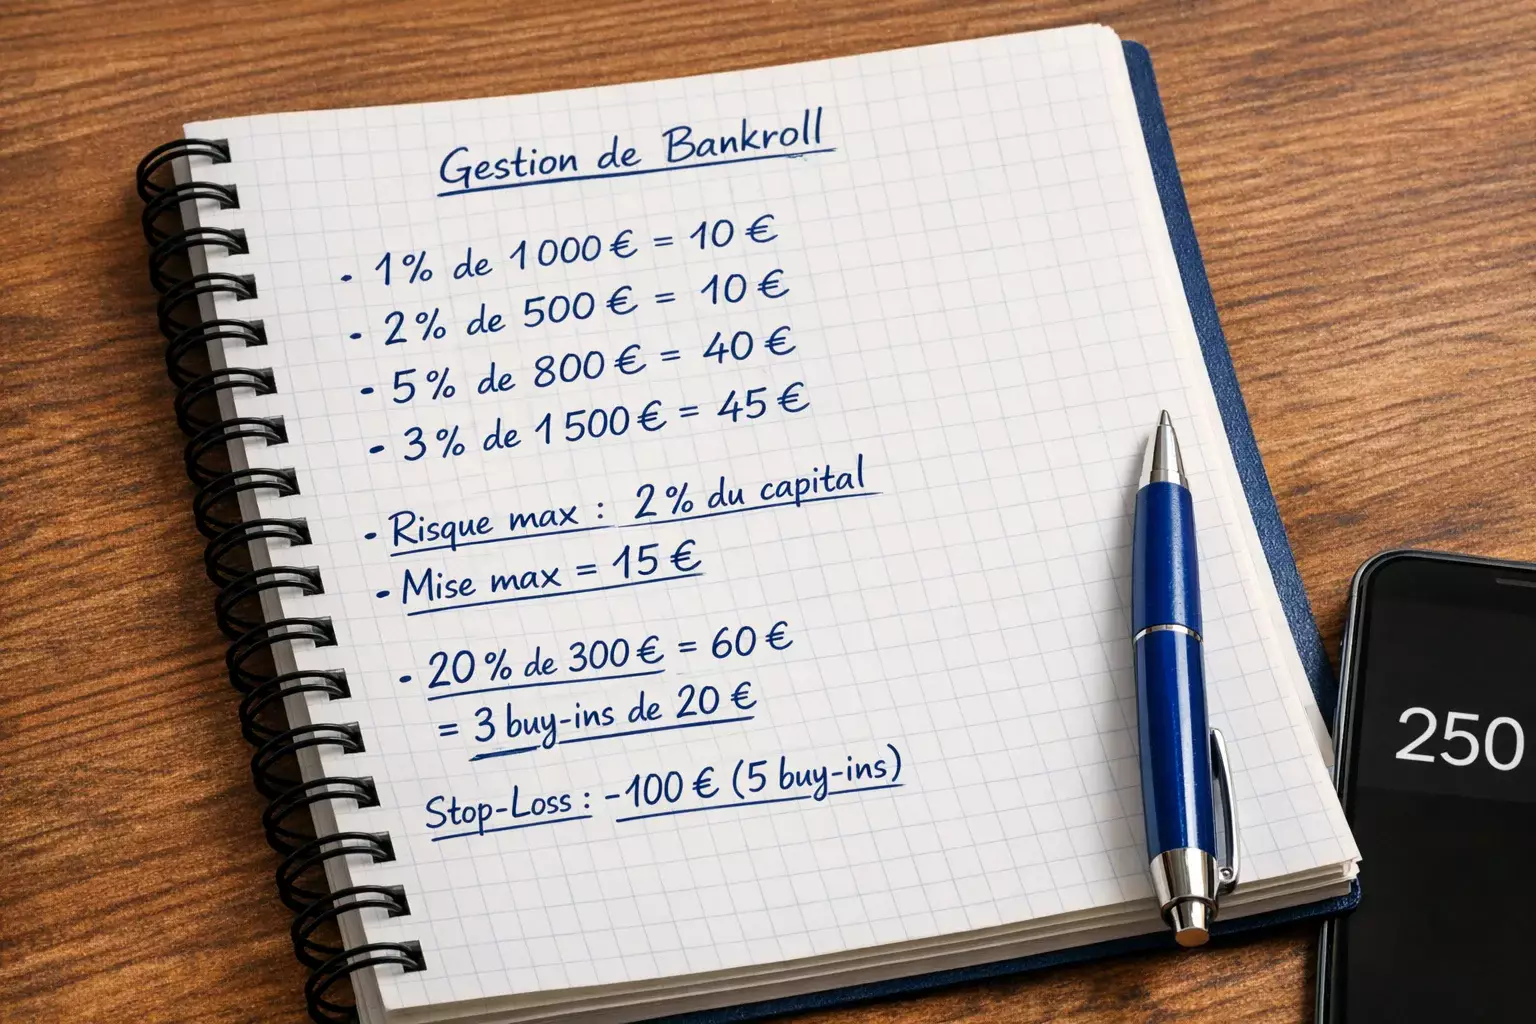 Gestion de Bankroll
- 1% de 1000 € = 10 €
- 2% de 500 € = 10 €
- 5% de 800 € = 40 €
- 3% de 1500 € = 45 €
- Risque max : 2% du capital
- Mise max = 15 €
- 20% de 300 € = 60 €
= 3 buy-ins de 20 €
Stop-Loss : -100 € (5 buy-ins)
250